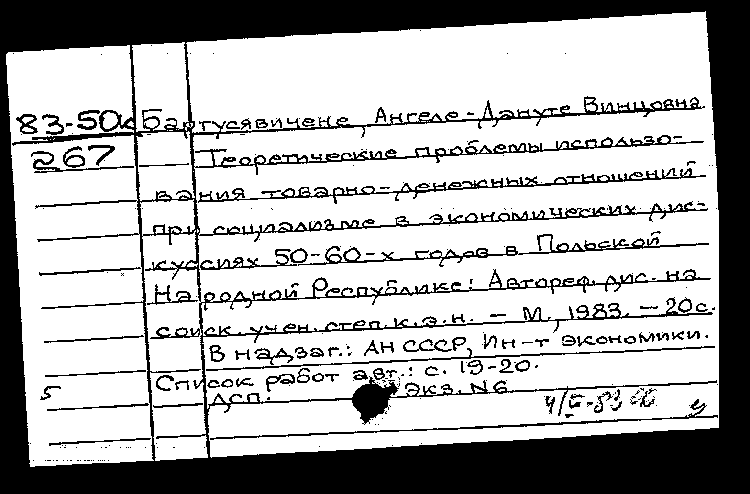 83-50к Бартусявичене, Ангеле-Дануте Винцовна
267 Теоретические проблемы использо-
вания товарно-денежных отношений
при социализме в экономических дис-
куссиях 50-60-х годов в Польской
Народной Республике: Автореф. дис. на
соиск. учен. степ. к.э.н. – М., 1983. – 20с.
В надзаг.: АН СССР, Ин-т экономики.
Список работ авт.: с. 19-20.
5 ДСП. Экз. N6